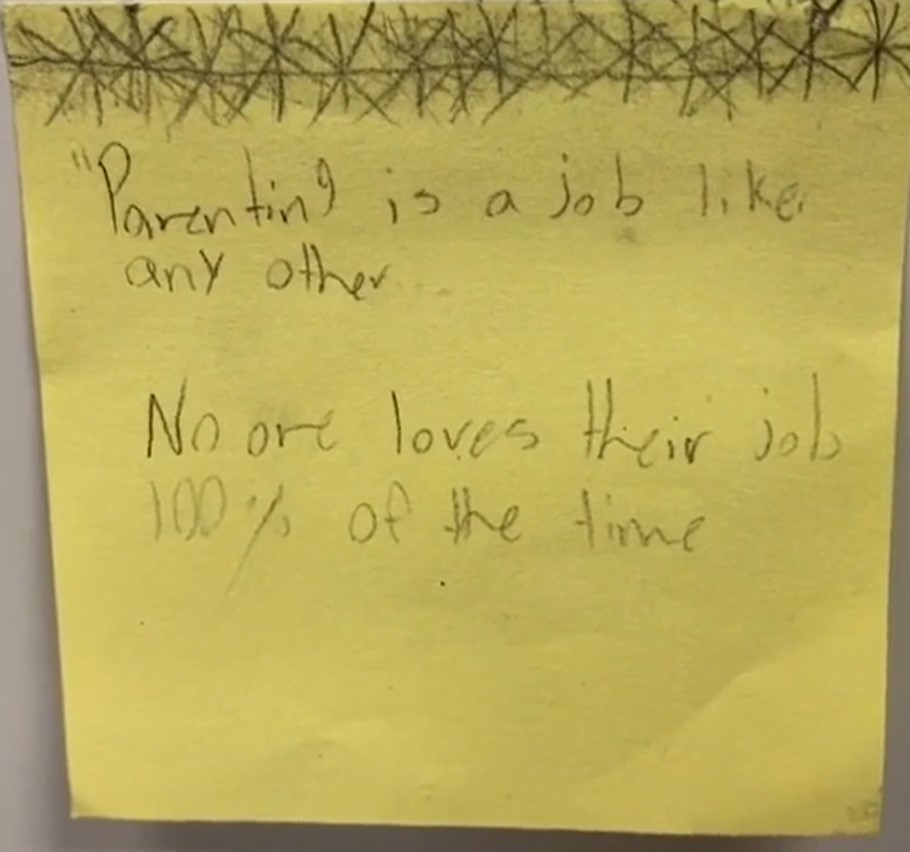 "Parenting is a job like
any other...
No one loves their job
100% of the time